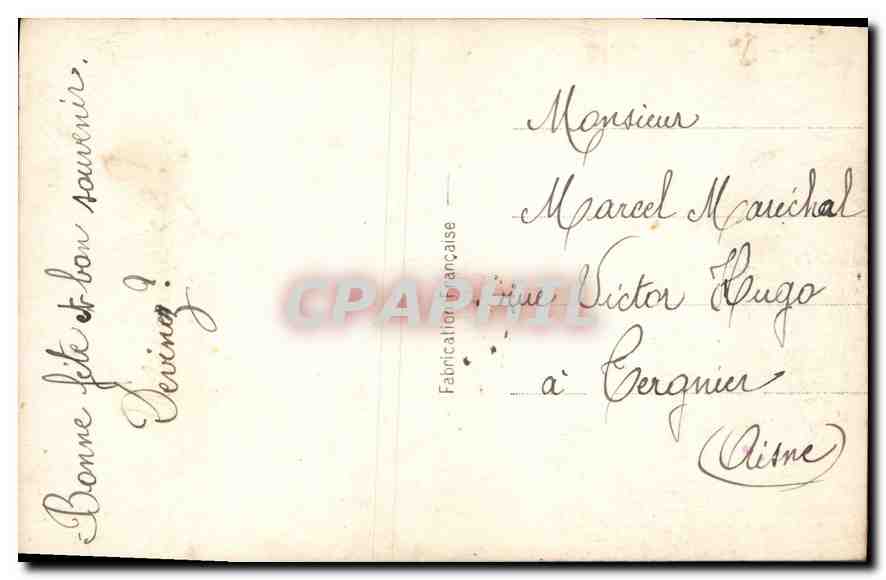 Bonne fête et bon souvenir.
Devinez ?
Fabrication Française
Monsieur
Marcel Maréchal
rue Victor Hugo
à Tergnier
(Aisne)
CPAPHIL